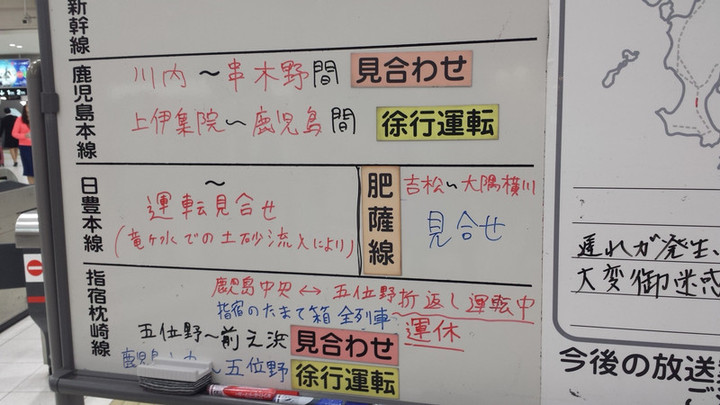 新幹線
鹿児島本線
川内〜串木野間 見合わせ
上伊集院〜鹿児島間 徐行運転
日豊本線
〜
運転見合せ
(竜ヶ水での土砂流入により)
肥薩線
吉松〜大隅横川
見合せ
指宿枕崎線
鹿児島中央↔五位野折返し運転中
指宿のたまて箱 全列車 運休
五位野〜前之浜 見合わせ
〜五位野 徐行運転
遅れが発生、
大変御迷惑
今後の放送